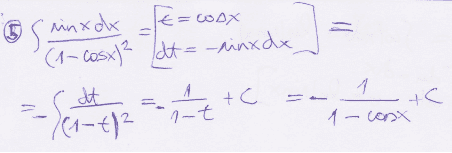 ⑤ ∫ sinx dx / (1-cosx)² = [t = cosx dt = -sinx dx] =
= -∫ dt / (1-t)² = - 1 / (1-t) + C = - 1 / (1-cosx) + C